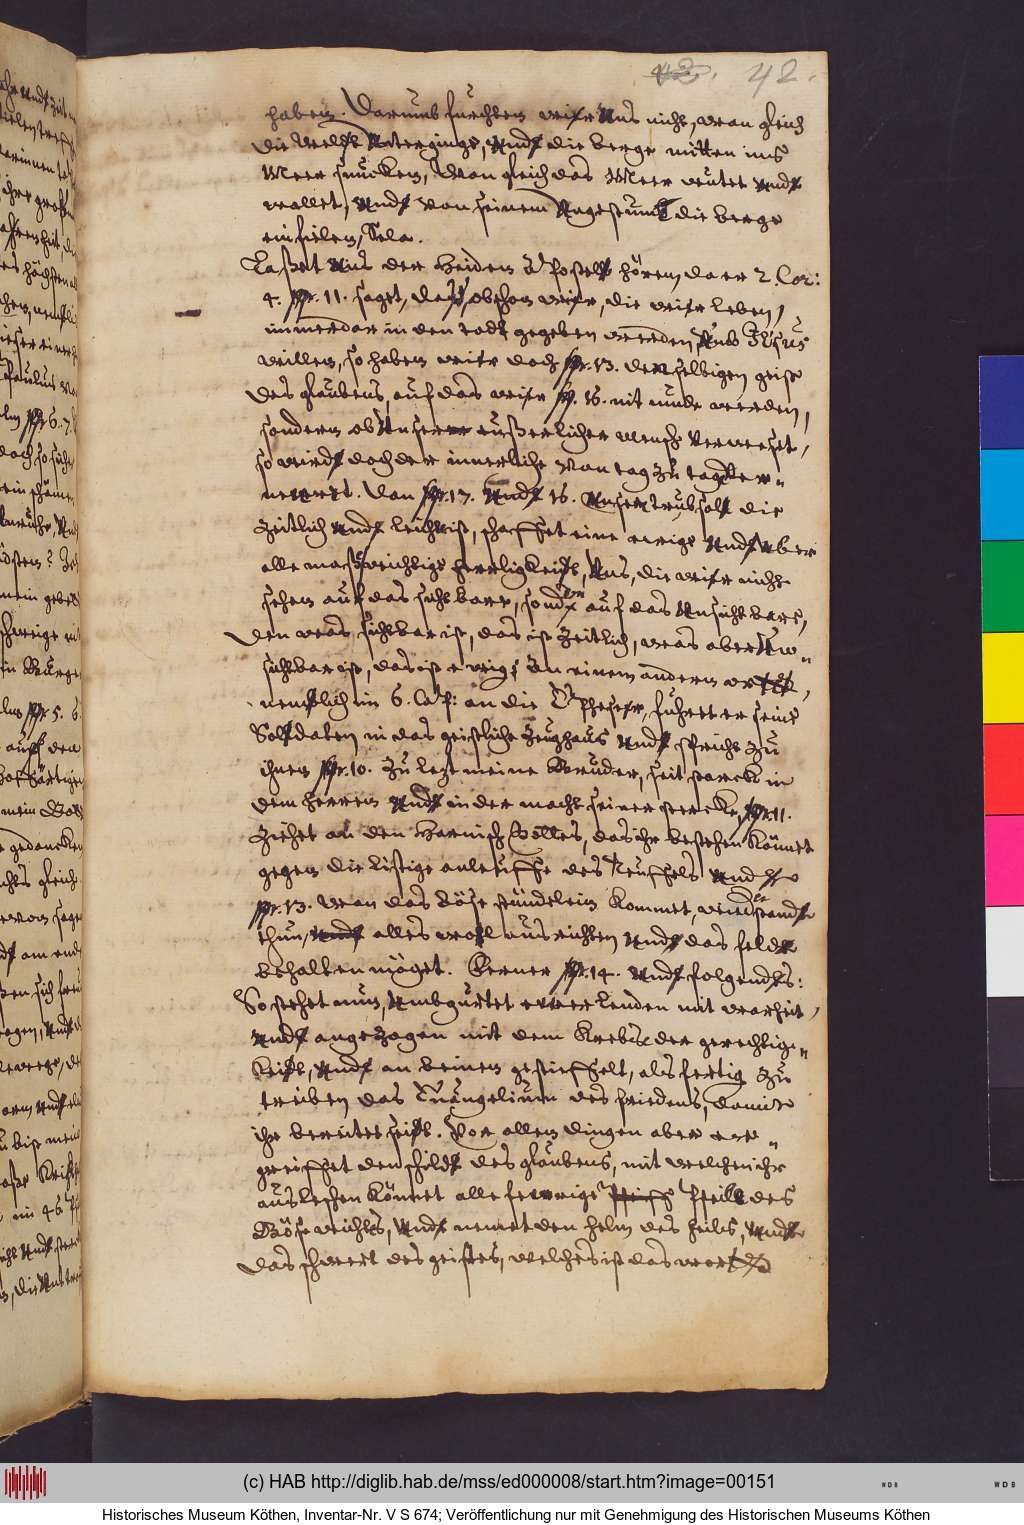 42.
haben. Darumb fürchten wier Uns nicht, wan gleich
die Weldt Untergienge, Undt die berge mitten ins
Meer süncken, Wan gleich das Meer wütet Undt
wallet, Undt Von seinem Ungestümb die berge
einfielen, Sela.
Laßet Uns der Heiden Apostell hören, da er 2. Cor:
4. 11. saget, daß, obschon wier, die wier leben,
immerdar in den todt gegeben werden, Umb Jhesus
willen, so haben wier doch 13. denselbigen geist
des glaubens, auf das wier 16. nit müde werden,
sondern ob Unser eußerlicher mensch Verweset,
so wirdt doch der innerliche Von tag zu tag
newert. Dan 17. Undt 18. Unser trübsall die
Zeitlich Undt leicht ist, schaffet eine ewige Undt Uber
alle maß wichtige herrligkeidt, Uns, die wier nicht
sehen auf das sichtbare, sondern auf das Unsichtbare,
den was sichtbar ist, das ist Zeitlich, was aber Un=
sichtbar ist, das ist ewig. An einem andern ort,
nemblich im 6. Cap: an die Epheser, führet er seine
Soldaten in das geistliche Zeughaus Undt spricht Zu
ihnen 10. Zu lezt meine Brüder, seit starck in
dem herren Undt in der macht seiner stercke, 11.
Ziehet an den Harnisch Gottes, das ihr bestehen könnet
gegen die listige anleuffe des Teuffels Undt
13. Wan das böse stündelein kommet, wiederstandt
thun, Undt alles wohl ausrichten Undt das feldt
behalten möget. Ferner 14. Undt folgendts:
So stehet nun, Umbgürtet ewer lenden mit warheit,
Undt angezogen mit dem Krebs der gerechtig=
keidt, Undt an beinen gestieffelt, als fertig Zu
treiben das Evangelium des friedens, damit
ihr bereitet seidt. Vor allen dingen aber er=
greiffet den schildt des glaubens, mit welchen ihr
auslechen könnet alle fewrige Pfeill des
Bösewichts, Undt nemet den helm des heils, Undt
das schwert des geistes, welches ist das wort
(c) HAB http://diglib.hab.de/mss/ed000008/start.htm?image=00151
WDB
WDB
Historisches Museum Köthen, Inventar-Nr. V S 674; Veröffentlichung nur mit Genehmigung des Historischen Museums Köthen